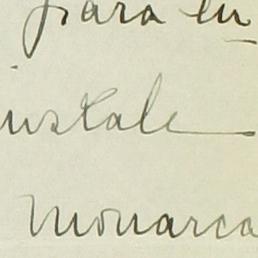 para en
instale
monarca